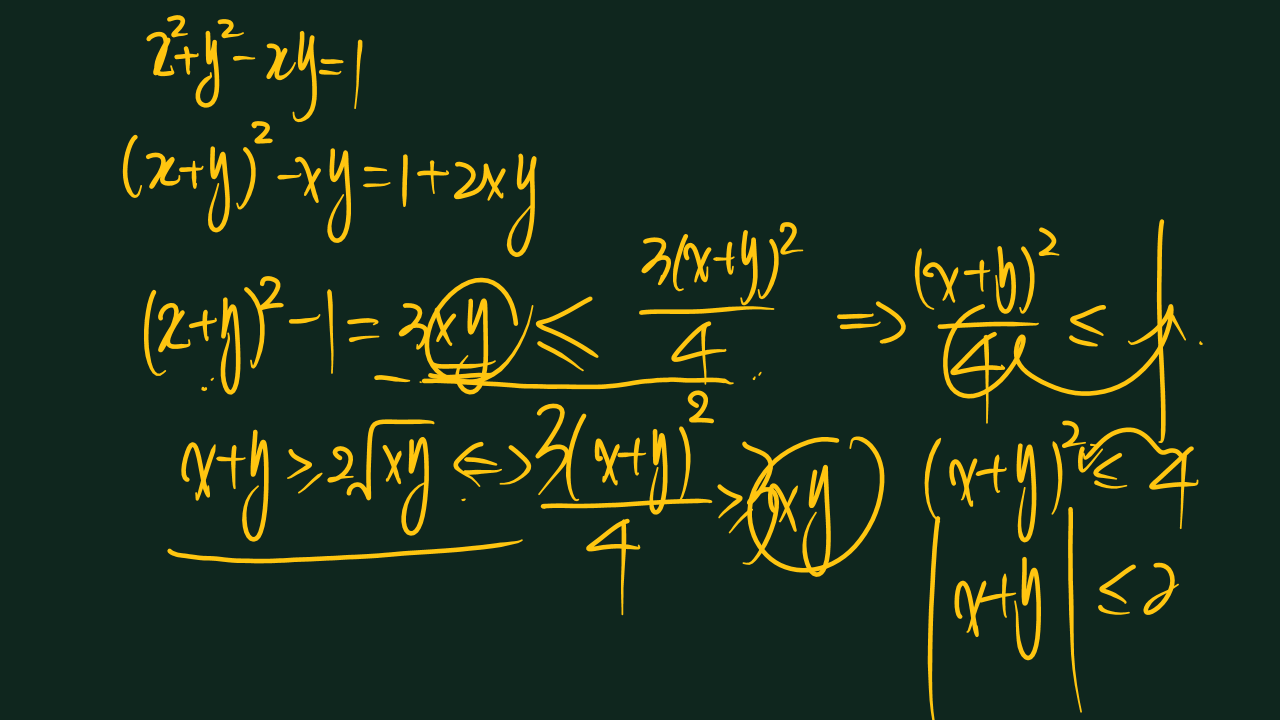 x²+y²-xy=1
(x+y)²-xy=1+2xy
(x+y)²-1=3xy ≤ 3(x+y)²/4 => (x+y)²/4 ≤ 1
x+y ≥ 2√xy <=> 3(x+y)²/4 ≥ 3xy
(x+y)² ≤ 4
|x+y| ≤ 2